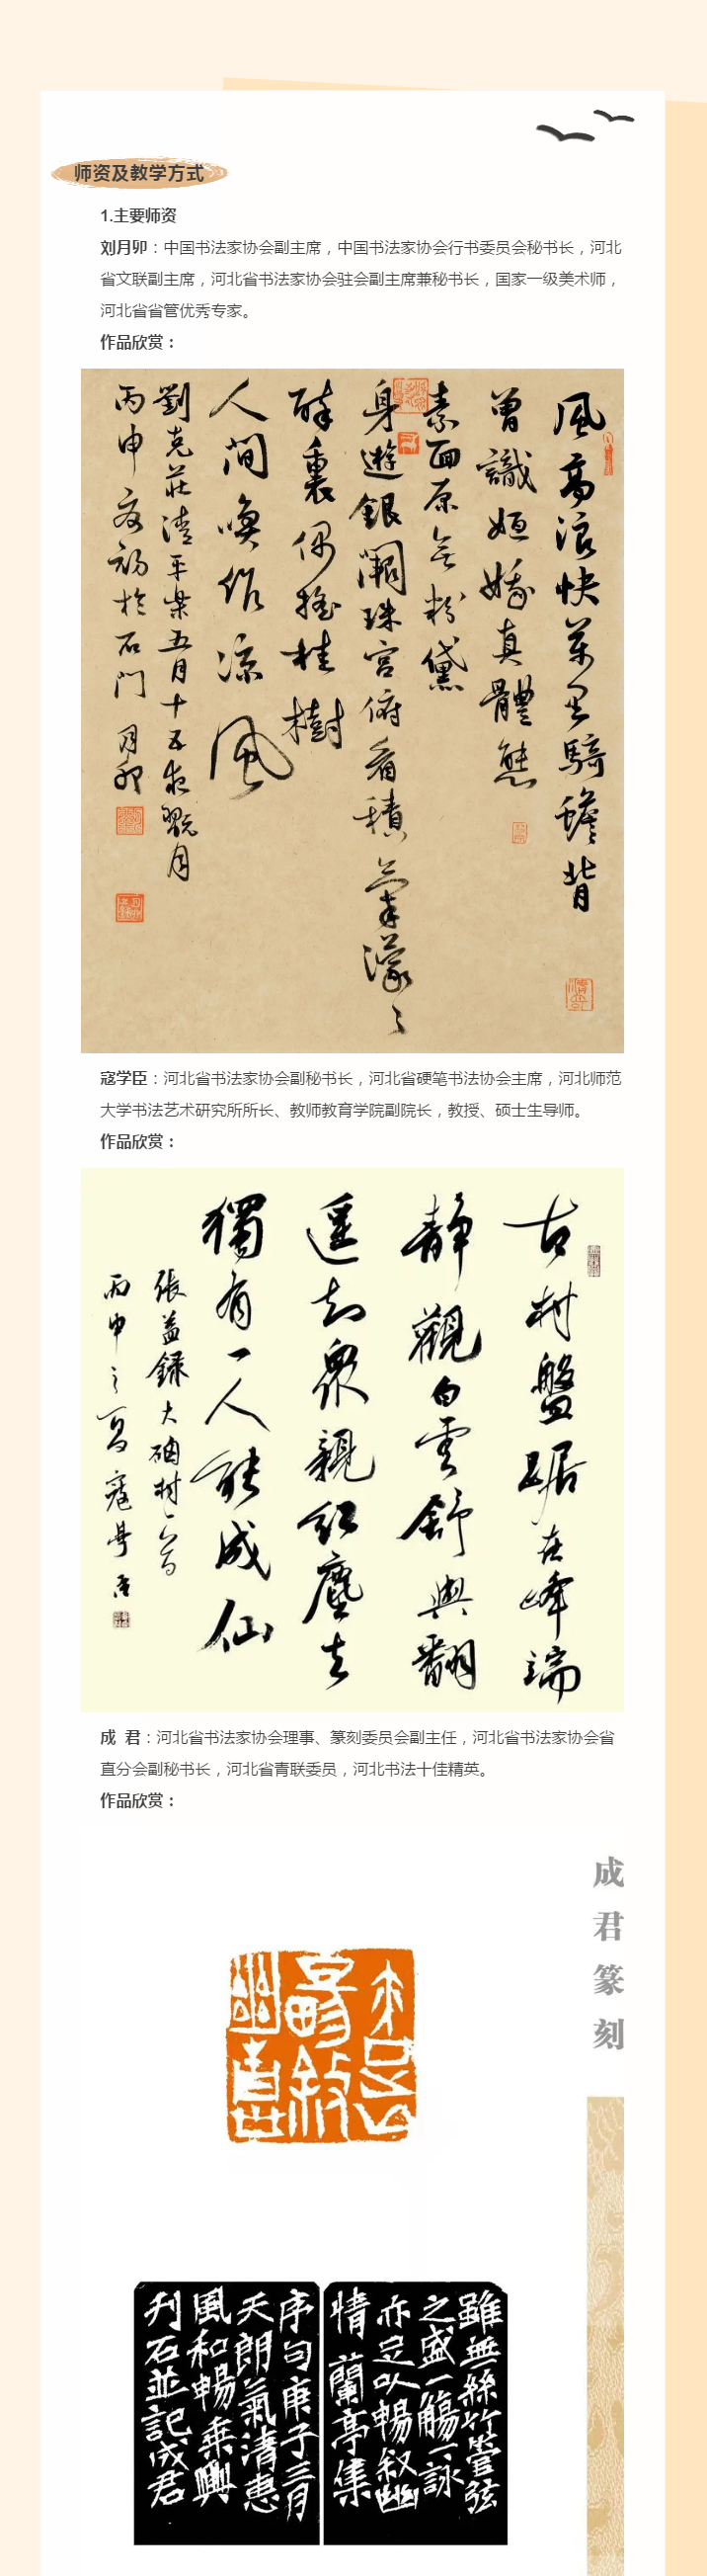 师资及教学方式
1.主要师资
刘月卯：中国书法家协会副主席，中国书法家协会行书委员会秘书长，河北
省文联副主席，河北省书法家协会驻会副主席兼秘书长，国家一级美术师，
河北省省管优秀专家。
作品欣赏：
風高浪快萬里騎蟾背
曾識姮娥真體態
素面原無粉黛
身遊銀闕珠宮俯看積氣濛濛
醉裏偶搖桂樹
人間喚作涼風
劉克莊清平樂五月十五夜翫月
丙申夏初於石門月卯
寇学臣：河北省书法家协会副秘书长，河北省硬笔书法协会主席，河北师范
大学书法艺术研究所所长、教师教育学院副院长，教授、硕士生导师。
作品欣赏：
古村盤踞在峰端
靜觀白雲舒與翻
遥知眾親紅塵去
獨有一人能成仙
張益録大硇村一首
丙申之夏寇學臣
成 君：河北省书法家协会理事、篆刻委员会副主任，河北省书法家协会省
直分会副秘书长，河北省青联委员，河北书法十佳精英。
作品欣赏：
成君篆刻
雖無絲竹管弦
之盛一觴一詠
亦足以暢叙幽
情蘭亭集
序句庚子三月
天朗氣清惠
風和暢乘興
刋石並記成君